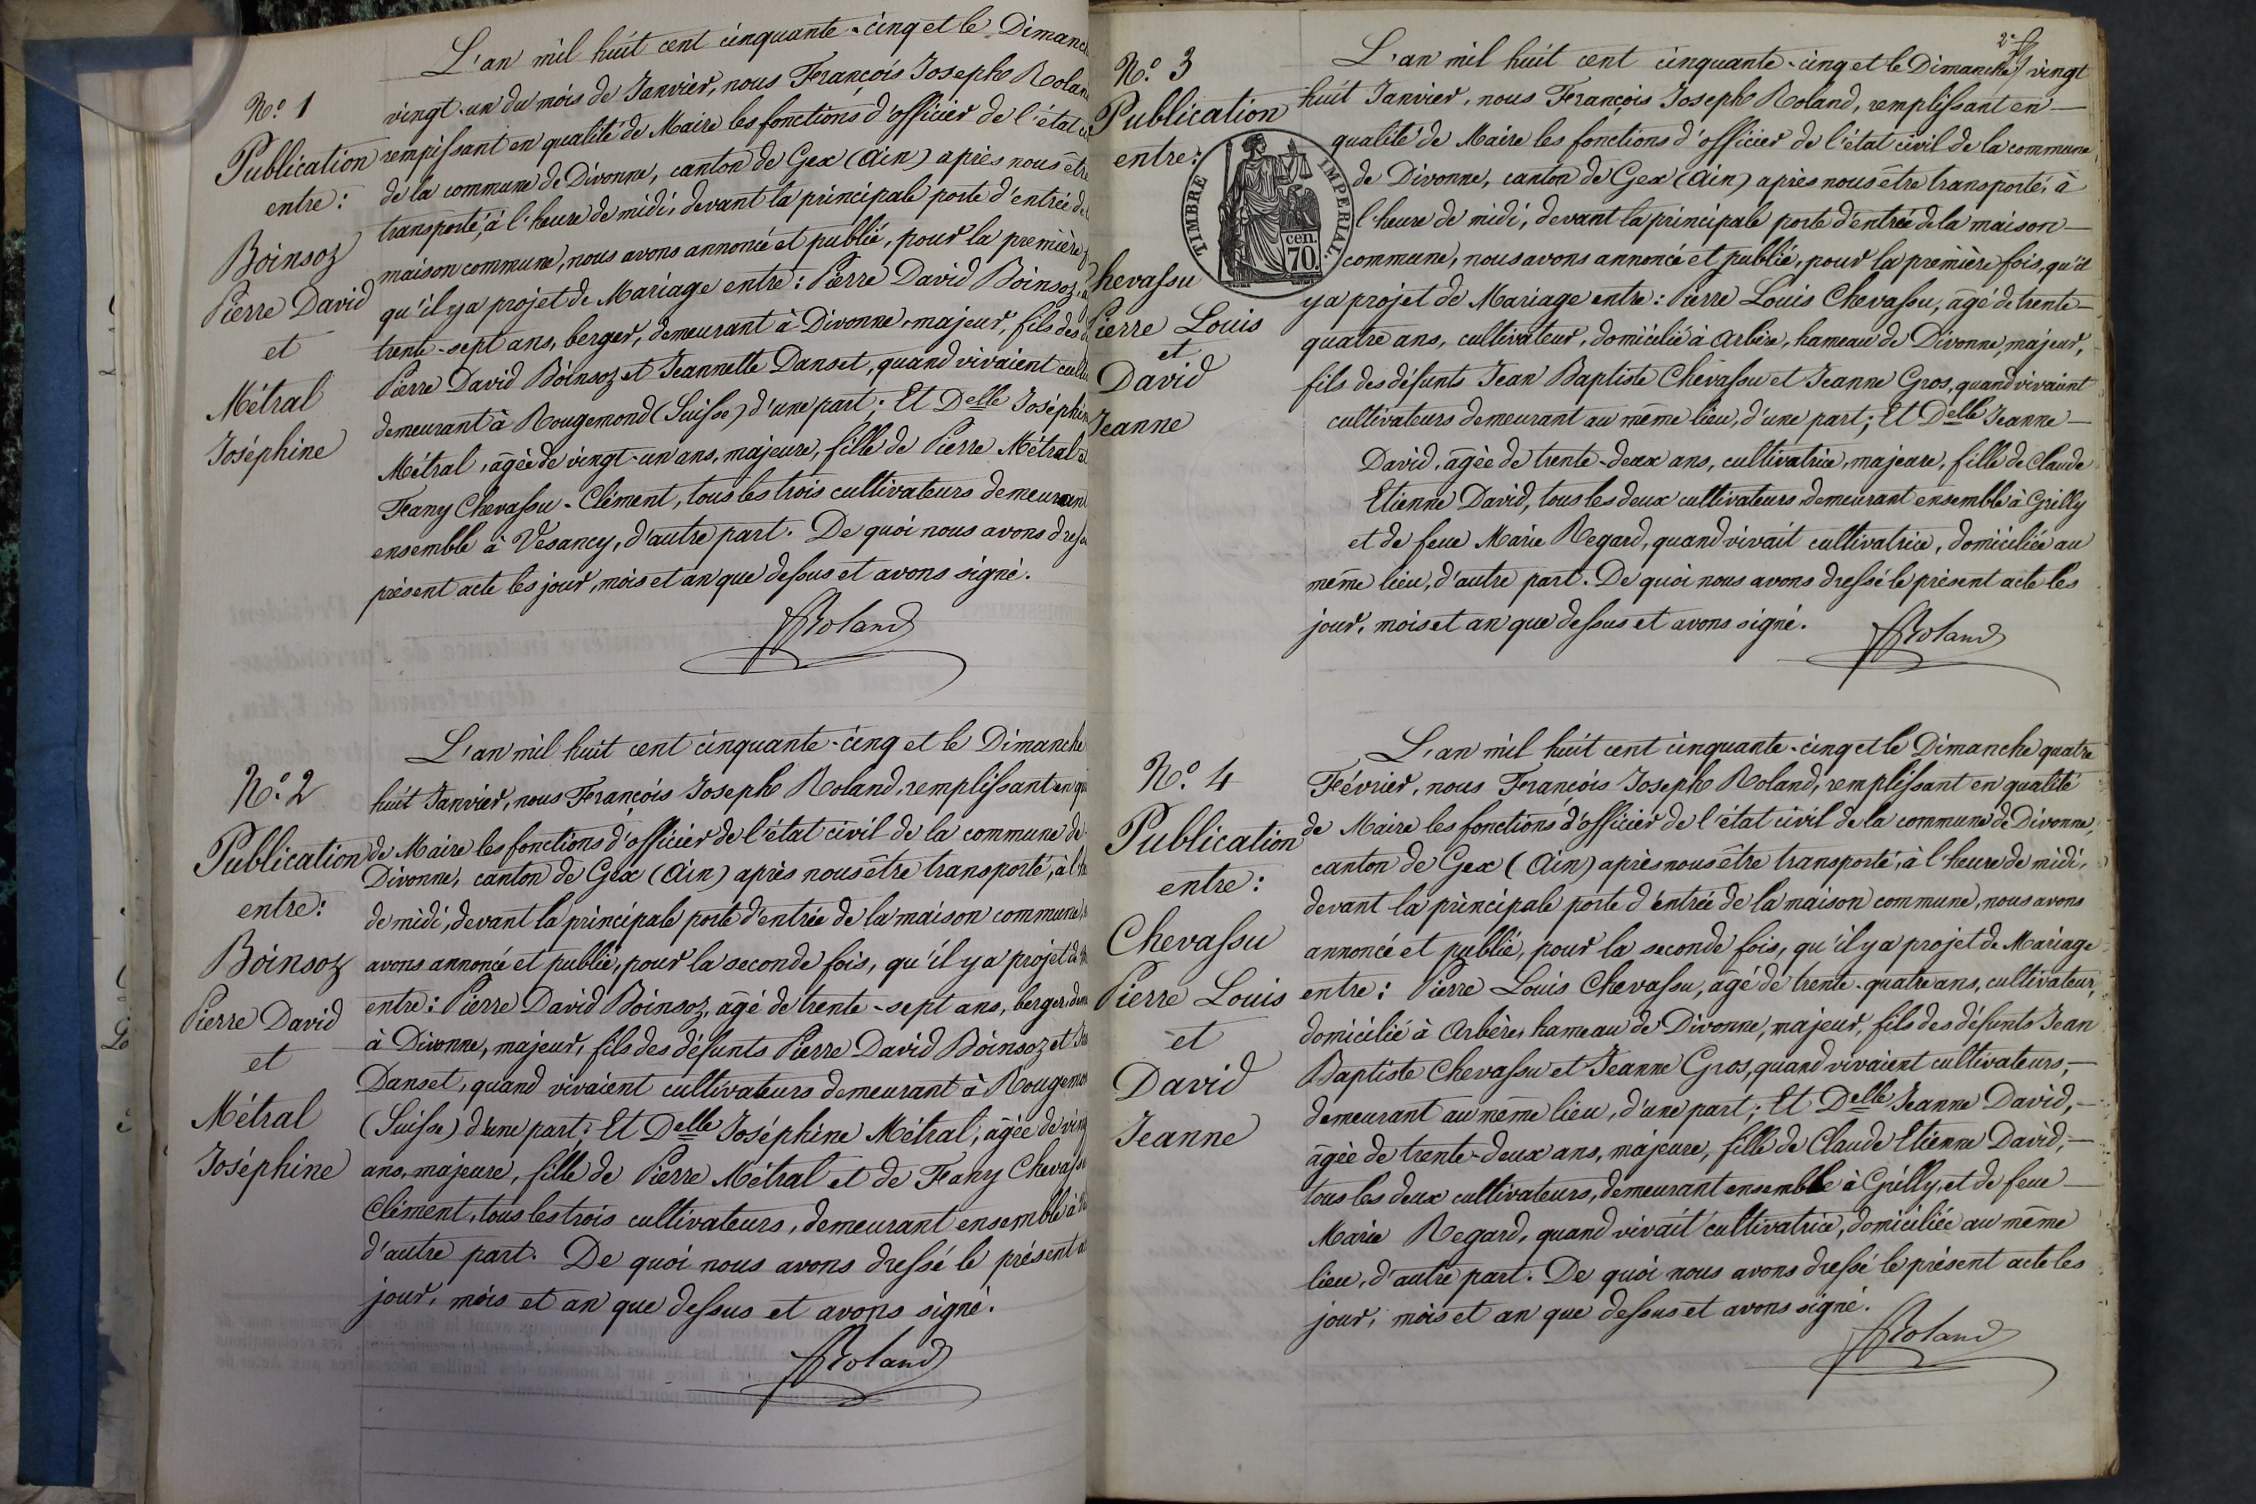 N.º 1
Publication
entre:
Boinsoz
Pierre David
et
Métral
Joséphine
L'an mil huit cent cinquante-cinq et le Dimanc
vingt-un du mois de Janvier, nous François Joseph Rolan
rempissant en qualité de Maire les fonctions d'officier de l'état
de la commune de Divonne, canton de Gex (Ain) après nous être
transporté, à l'heure de midi, devant la principale porte d'entrée de
maison commune, nous avons annoncé et publié, pour la première
qu'il y a projet de Mariage entre: Pierre David Boinsoz,
trente-sept ans, berger, demeurant à Divonne, majeur, fils des
Pierre David Boinsoz et Jeannette Danset, quand vivaient
demeurant à Rougemond (Suisse) d'une part; Et Delle Joséphin
Métral, âgée de vingt-un ans, majeure, fille de Pierre Métral
Fany Chevassu-Clément, tous les trois cultivateurs demeuran
ensemble à Vesancy, d'autre part. De quoi nous avons dressé
présent acte les jour, mois et an que dessus et avons signé.
FRoland
N.º 2
Publication
entre:
Boinsoz
Pierre David
et
Métral
Joséphine
L'an mil huit cent cinquante-cinq et le Dimanche
huit Janvier, nous François Joseph Roland, remplissant en
de Maire les fonctions d'officier de l'état civil de la commune de
Divonne, canton de Gex (Ain) après nous être transporté, à l'h
de midi, devant la principale porte d'entrée de la maison commune,
avons annoncé et publié, pour la seconde fois, qu'il y a projet de
entre: Pierre David Boinsoz, âgé de trente-sept ans, berger, dem
à Divonne, majeur, fils des défunts Pierre David Boinsoz et
Danset, quand vivaient cultivateurs demeurant à Rougemo
(Suisse) d'une part; Et Delle Joséphine Métral, âgée de ving
ans, majeure, fille de Pierre Métral et de Fany Chevassu
Clément, tous les trois cultivateurs, demeurant ensemble à
d'autre part. De quoi nous avons dressé le présent
jour, mois et an que dessus et avons signé.
FRoland
2e
N.º 3
Publication
entre:
TIMBRE IMPERIAL
cen.
70.
Chevassu
Pierre Louis
et
David
Jeanne
L'an mil huit cent cinquante-cinq et le Dimanche vingt
huit Janvier, nous François Joseph Roland, remplissant en
qualité de Maire les fonctions d'officier de l'état civil de la commune
de Divonne, canton de Gex (Ain) après nous être transporté, à
l'heure de midi, devant la principale porte d'entrée de la maison
commune, nous avons annoncé et publié, pour la première fois, qu'il
y a projet de Mariage entre: Pierre Louis Chevassu, âgé de trente-
quatre ans, cultivateur, domicilié à Arbère, hameau de Divonne, majeur,
fils des défunts Jean Baptiste Chevassu et Jeanne Gros, quand vivaient
cultivateurs demeurant au même lieu, d'une part; Et Delle Jeanne
David, âgée de trente-deux ans, cultivatrice, majeure, fille de Claude
Etienne David, tous les deux cultivateurs demeurant ensemble à Grilly
et de feue Marie Regard, quand vivait cultivatrice, domiciliée au
même lieu, d'autre part. De quoi nous avons dressé le présent acte les
jour, mois et an que dessus et avons signé.
FRoland
N.º 4
Publication
entre:
Chevassu
Pierre Louis
et
David
Jeanne
L'an mil huit cent cinquante-cinq et le Dimanche quatre
Février, nous François Joseph Roland, remplissant en qualité
de Maire les fonctions d'officier de l'état civil de la commune de Divonne,
canton de Gex (Ain) après nous être transporté, à l'heure de midi,
devant la principale porte d'entrée de la maison commune, nous avons
annoncé et publié, pour la seconde fois, qu'il y a projet de Mariage
entre: Pierre Louis Chevassu, âgé de trente-quatre ans, cultivateur,
domicilié à Arbère, hameau de Divonne, majeur, fils des défunts Jean
Baptiste Chevassu et Jeanne Gros, quand vivaient cultivateurs,
demeurant au même lieu, d'une part; Et Delle Jeanne David,
âgée de trente-deux ans, majeure, fille de Claude Etienne David,
tous les deux cultivateurs, demeurant ensemble à Grilly, et de feue
Marie Regard, quand vivait cultivatrice, domiciliée au même
lieu, d'autre part. De quoi nous avons dressé le présent acte les
jour, mois et an que dessus et avons signé.
FRoland